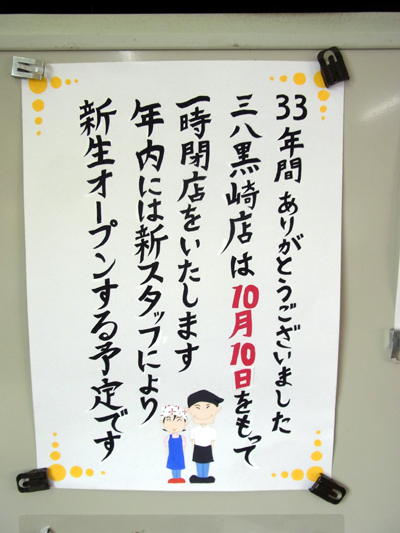 33年間ありがとうございました
三八黒崎店は10月10日をもって
一時閉店をいたします
年内には新スタッフにより
新生オープンする予定です